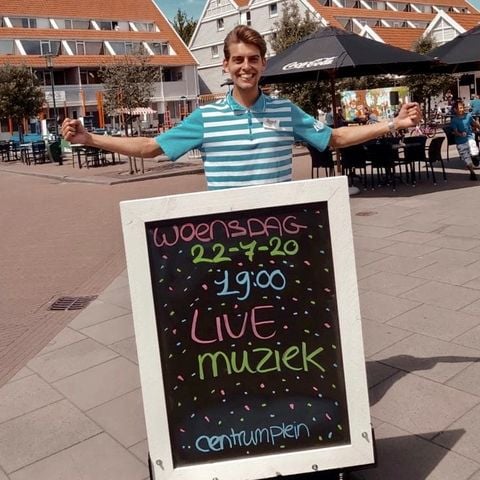 Coca-Cola
WOENSDAG
22-7-20
19:00
LIVE
muziek
centrumplein